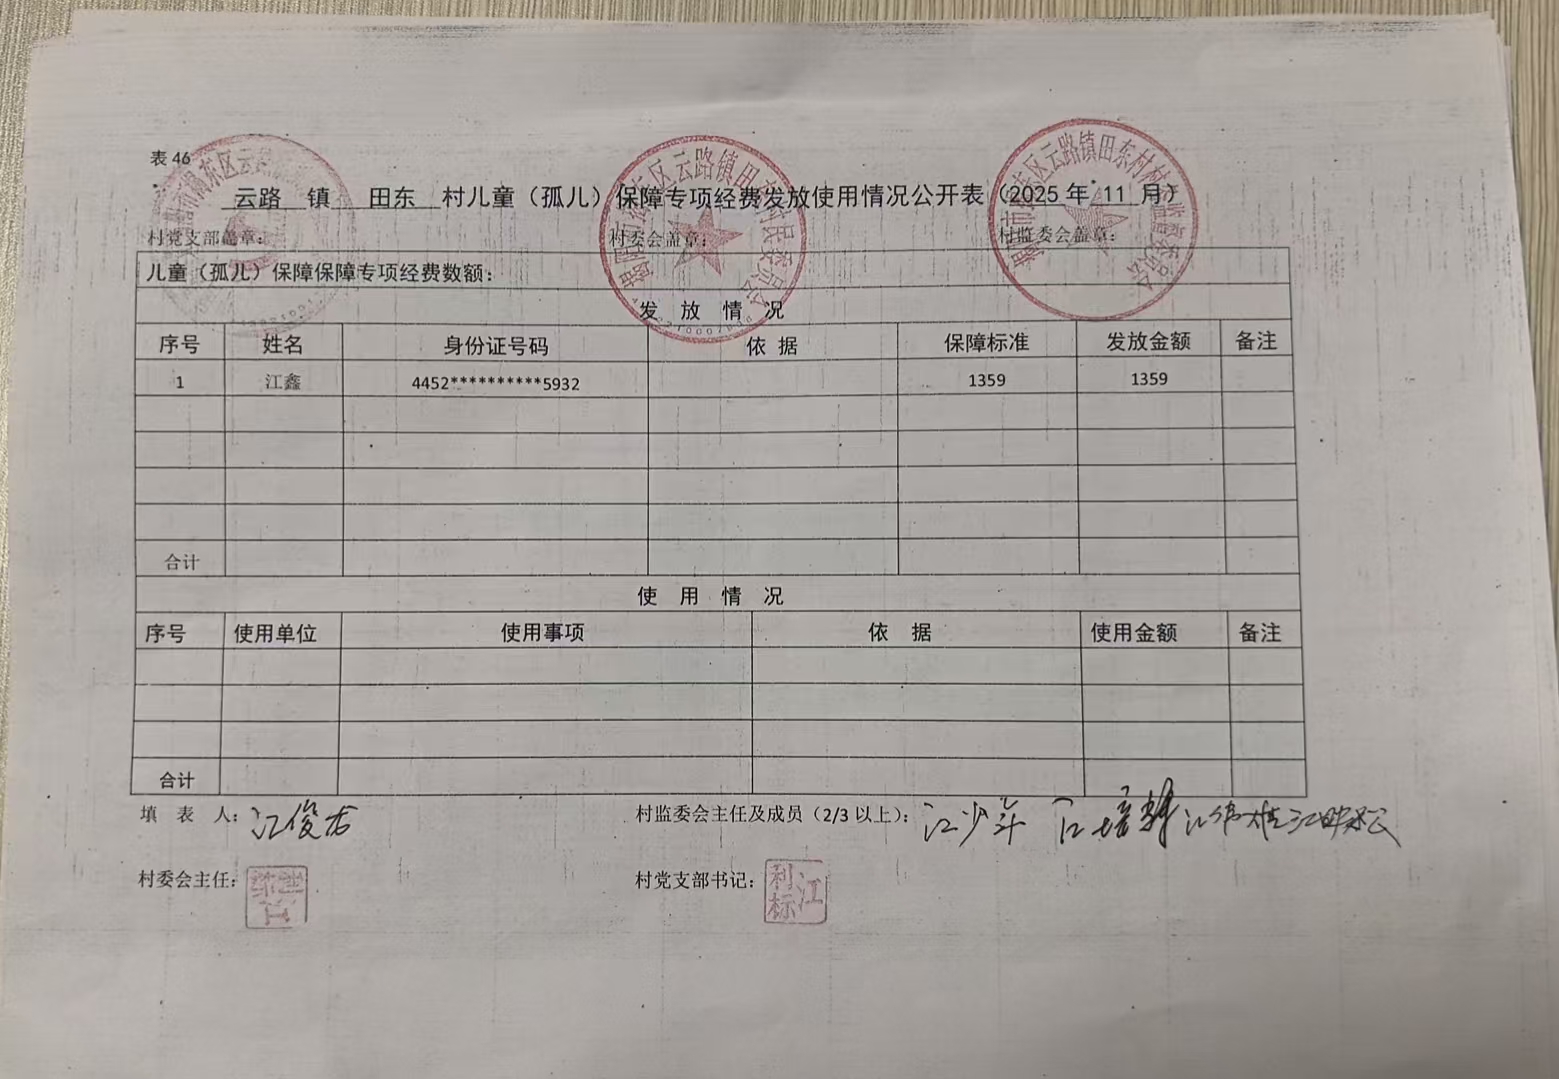 表 46
云路 镇 田东 村儿童（孤儿）保障专项经费发放使用情况公开表（2025 年 11 月）
村党支部盖章： 村委会盖章： 村监委会盖章：
儿童（孤儿）保障保障专项经费数额：
发 放 情 况
序号 姓名 身份证号码 依 据 保障标准 发放金额 备注
1 江鑫 4452**********5932 1359 1359
合计
使 用 情 况
序号 使用单位 使用事项 依 据 使用金额 备注
合计
填 表 人：江俊龙 村监委会主任及成员（2/3 以上）：江少年
村委会主任： 村党支部书记：江利标